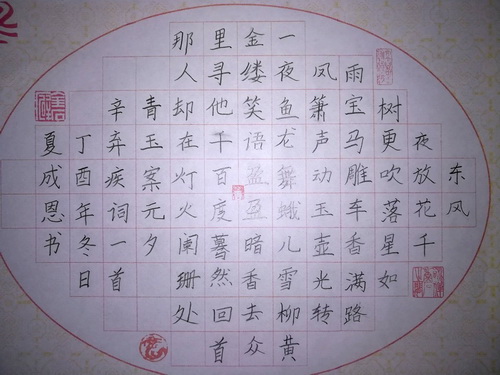 东风
夜放花千
树更吹落星如
雨宝马雕车香满路
凤箫声动玉壶光转
一夜鱼龙舞蛾儿雪柳黄
金缕笑语盈盈暗香去众
里寻他千百度蓦然回首
那人却在灯火阑珊处
青玉案元夕
辛弃疾词一首
丁酉年冬日
夏成恩书